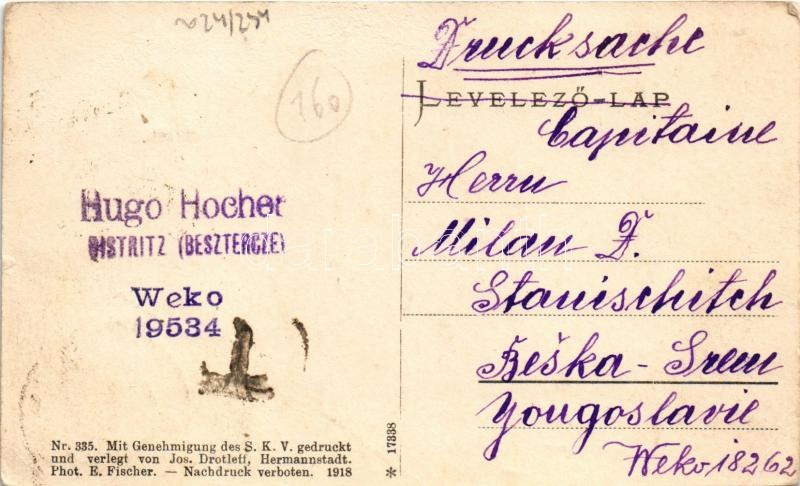 160
Hugo Hocher
BISTRITZ (BESZTERCZE)
Weko
19534
T
Nr. 335. Mit Genehmigung des S. K. V. gedruckt
und verlegt von Jos. Drotleff, Hermannstadt.
Phot. E. Fischer. — Nachdruck verboten. 1918
* 17338
Drucksache
LEVELEZŐ-LAP
Capitaine
Herrn
Milan D.
Stanischitch
Beška - Srem
Yougoslavie
Weko 18262